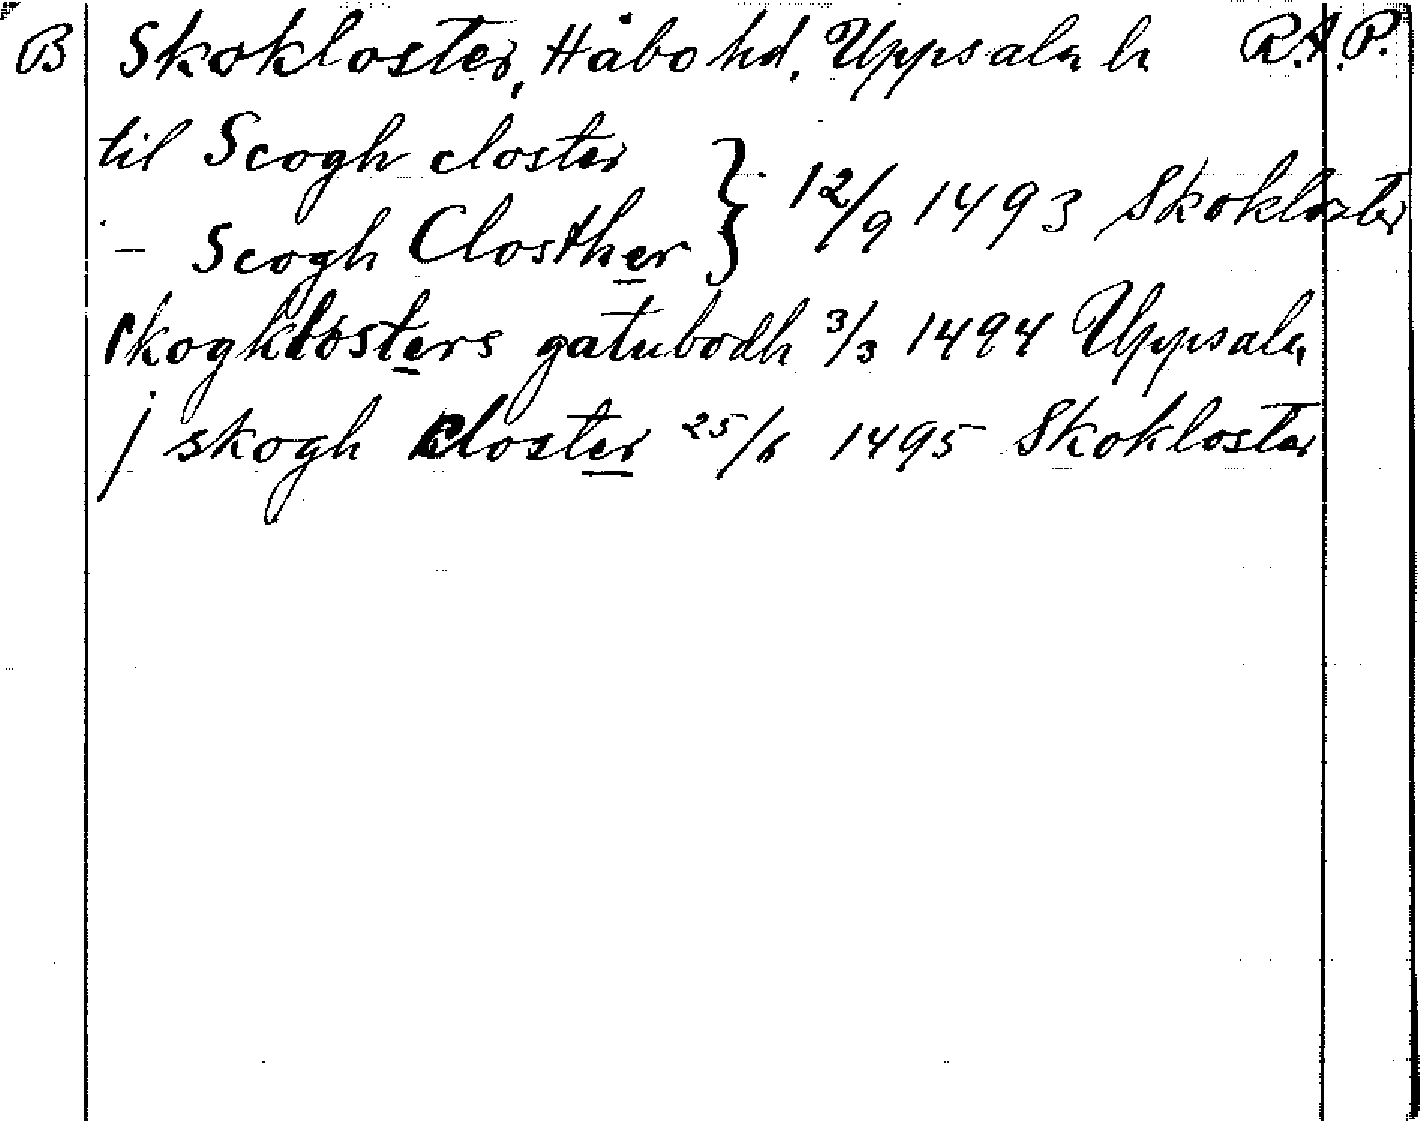 B Skokloster, Håbo hd, Uppsala l. R.A.P.
til Scogh closter
– Scogh Closther } 12/9 1493 Skokloster
skogklosters gatubodh 3/3 1494 Uppsala
j skogh closter 25/6 1495 Skokloster